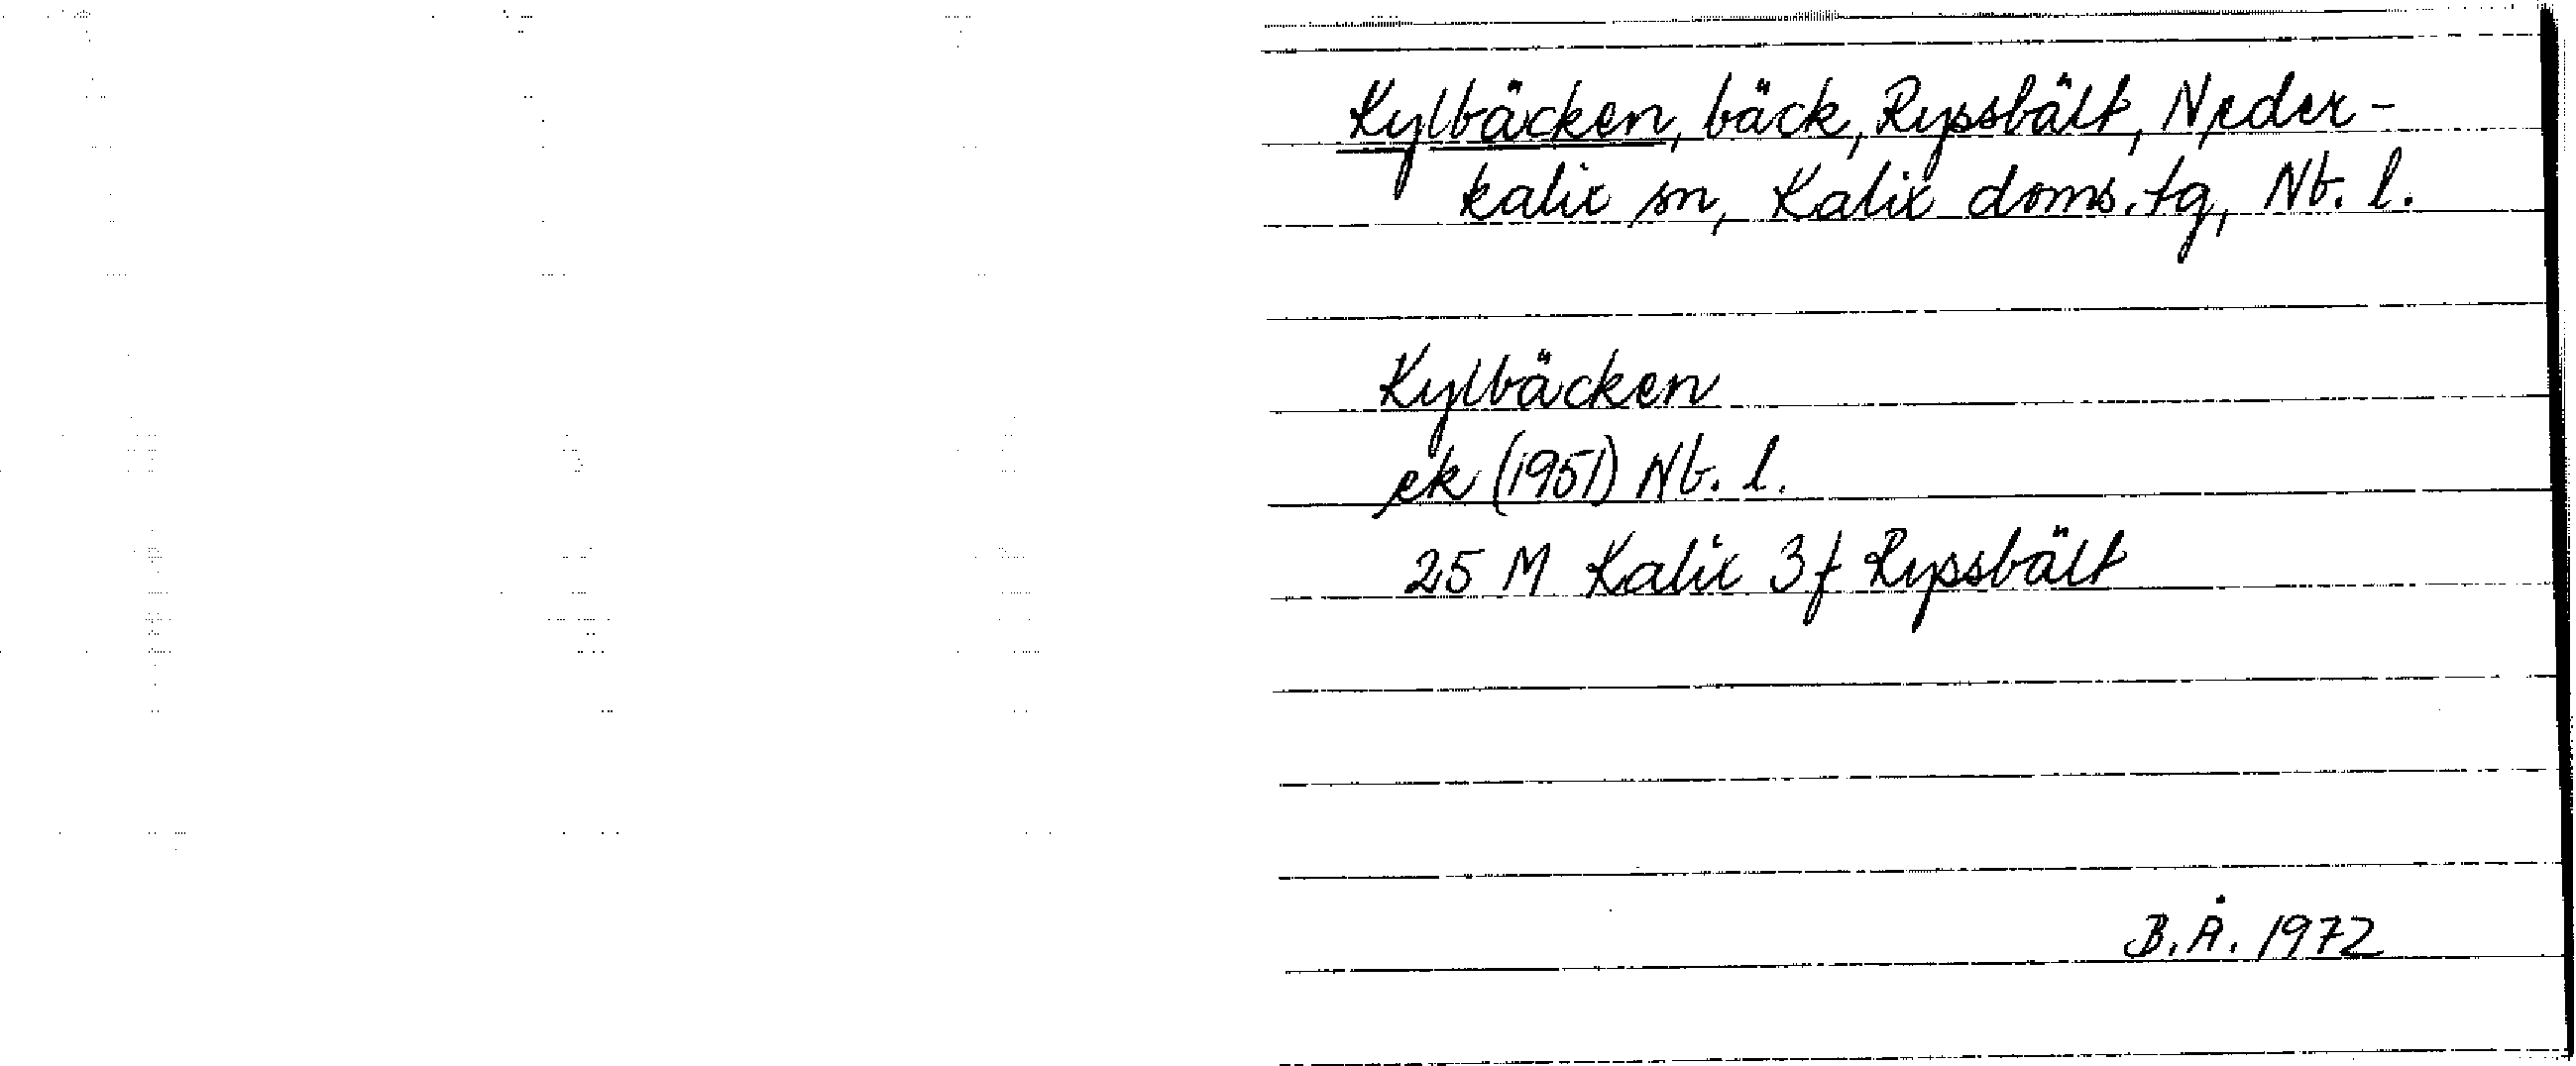 Kylbäcken, bäck, Ryssbält, Neder-
kalix sn, Kalix doms.tg, Nb. l.
Kylbäcken
ek (1951) Nb. l.
25 M Kalix 3f Ryssbält
B.Å. 1972